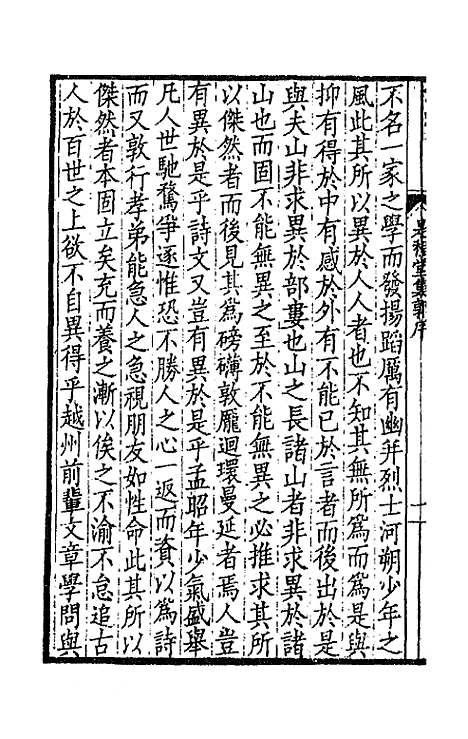 不名一家之學而發揚蹈厲有幽并烈士河朔少年之
風此其所以異於人人者也不知其無所爲而爲是與
抑有得於中有感於外有不能已於言者而後出於是
與夫山非求異於部婁也山之長諸山者非求異於諸
山也而固不能無異之至於不能無異之必推求其所
以傑然者而後見其爲磅礴敦龐迴環曼延者焉人豈
有異於是乎詩文又豈有異於是乎孟昭年少氣盛舉
凡人世馳騖爭逐惟恐不勝人之心一返而資以爲詩
而又敦行孝弟能急人之急視朋友如性命此其所以
傑然者本固立矣充而養之漸以俟之不渝不怠追古
人於百世之上欲不自異得乎越州前輩文章學問與
程堂集 序